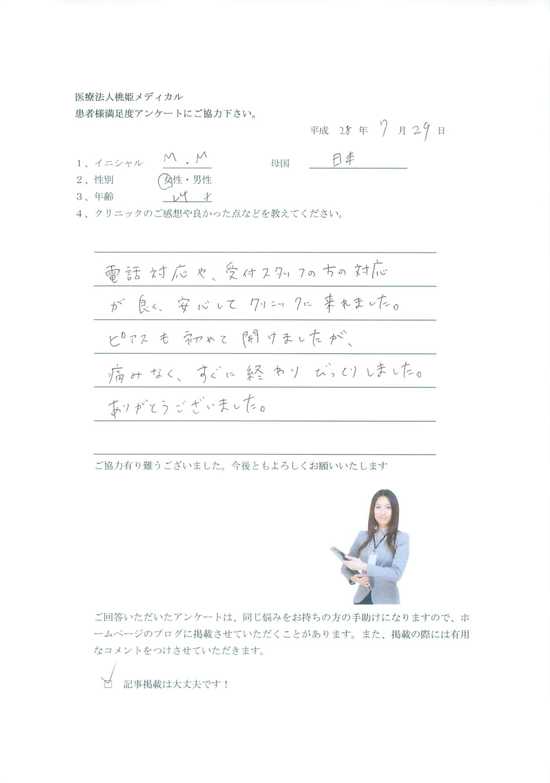 医療法人桃姫メディカル
患者様満足度アンケートにご協力下さい。
平成 28 年 7 月 29 日
1、イニシャル M.M 母国 日本
2、性別 女性・男性
3、年齢 24 才
4、クリニックのご感想や良かった点などを教えてください。
電話対応や、受付スタッフの方の対応
が良く、安心してクリニックに来れました。
ピアスも初めて開けましたが、
痛みなく、すぐに終わりびっくりしました。
ありがとうございました。
ご協力有り難うございました。今後ともよろしくお願いいたします
ご回答いただいたアンケートは、同じ悩みをお持ちの方の手助けになりますので、ホ
ームページのブログに掲載させていただくことがあります。また、掲載の際には有用
なコメントをつけさせていただきます。
記事掲載は大丈夫です！